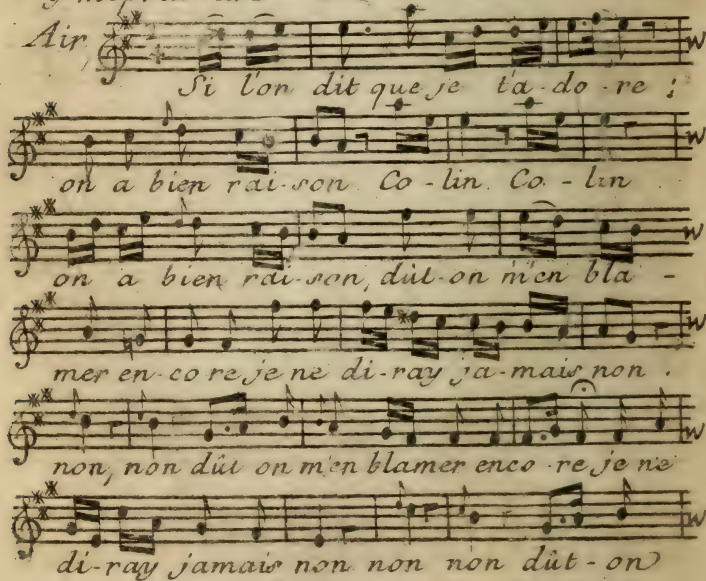 Air
Si l'on dit que je t'a-do-re;
on a bien rai-son Co-lin Co-lin
on a bien rai-son, dût-on m'en bla-
mer en-co re je ne di-ray ja-mais non.
non, non dût on m'en blamer enco-re je ne
di-ray jamais non non non dût-on